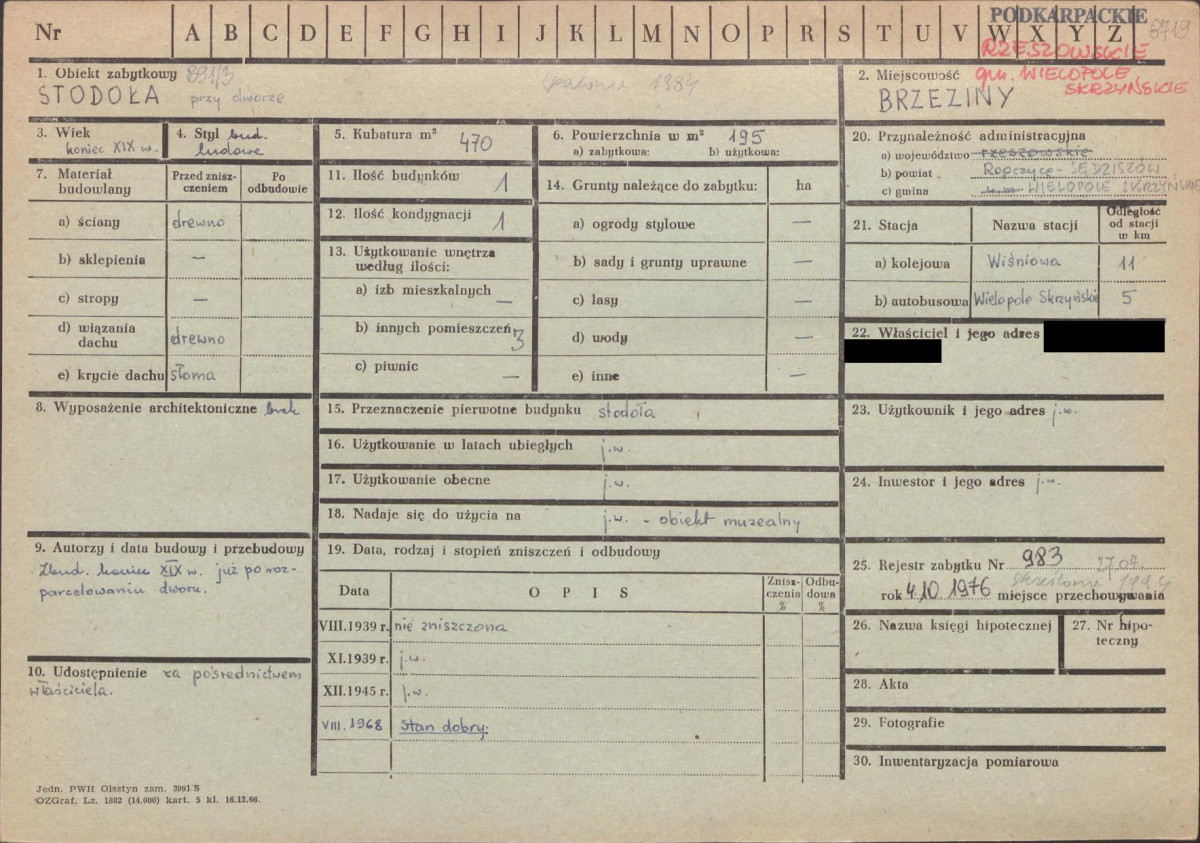 Nr A B C D E F G H I J K L M N O P R S T U V W X Y Z
PODKARPACKIE
RZESZOWSKIE
gm. WIELOPOLE
SKRZYŃSKIE
1. Obiekt zabytkowy 891/3
STODOŁA przy dworze
spalona 1984
2. Miejscowość
BRZEZINY
3. Wiek
koniec XIX w.
4. Styl bud.
ludowe
5. Kubatura m³ 470
6. Powierzchnia w m² 195
a) zabytkowa: b) użytkowa:
7. Materiał budowlany
Przed zniszczeniem
Po odbudowie
a) ściany drewno
b) sklepienia —
c) stropy —
d) wiązania dachu drewno
e) krycie dachu słoma
8. Wyposażenie architektoniczne brak
9. Autorzy i data budowy i przebudowy
Zbud. koniec XIX w. już po roz-
parcelowaniu dworu.
10. Udostępnienie za pośrednictwem
właściciela.
11. Ilość budynków 1
12. Ilość kondygnacji 1
13. Użytkowanie wnętrza
według ilości:
a) izb mieszkalnych —
b) innych pomieszczeń 3
c) piwnic —
14. Grunty należące do zabytku: ha
a) ogrody stylowe —
b) sady i grunty uprawne —
c) lasy —
d) wody —
e) inne —
15. Przeznaczenie pierwotne budynku stodoła
16. Użytkowanie w latach ubiegłych j.w.
17. Użytkowanie obecne j.w.
18. Nadaje się do użycia na j.w. - obiekt muzealny
19. Data, rodzaj i stopień zniszczeń i odbudowy
Data O P I S Zniszczenia % Odbudowa %
VIII.1939 r. nie zniszczona
XI.1939 r. j.w.
XII.1945 r. j.w.
VIII.1968 stan dobry.
20. Przynależność administracyjna
a) województwo rzeszowskie
b) powiat Ropczyce - SĘDZISZÓW
c) gmina WIELOPOLE SKRZYŃSKIE
21. Stacja Nazwa stacji Odległość od stacji w km
a) kolejowa Wiśniowa 11
b) autobusowa Wielopole Skrzyńskie 5
22. Właściciel i jego adres
23. Użytkownik i jego adres j.w.
24. Inwestor i jego adres j.w.
25. Rejestr zabytku Nr 983
skreślona
rok 4.10.1976 miejsce przechowywania
26. Nazwa księgi hipotecznej
27. Nr hipo-
teczny
28. Akta
29. Fotografie
30. Inwentaryzacja pomiarowa
Jedn. PWH Olsztyn zam. 3991 S
OZGraf. Lz. 1882 (14.000) kart. 5 kl. 16.12.66.